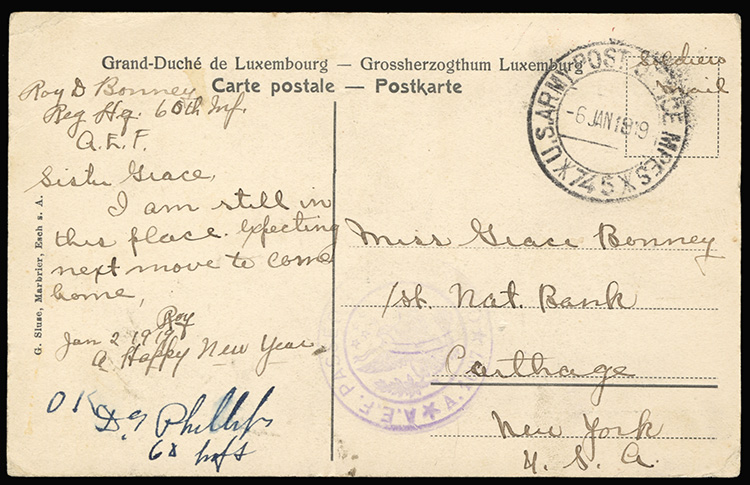 Grand-Duché de Luxembourg — Grossherzogthum Luxemburg
Carte postale — Postkarte
Soldiers
mail
U.S. ARMY POST OFFICE M.P.E.S. X 745 X
-6 JAN 1919
Roy D Bonney
Reg Hq. 60th Inf.
A.E.F.
Sister Grace,
I am still in
this place. expecting
next move to come
home,
Roy
Jan 2 1919
A Happy New Year.
OK
Phillips
60
Miss Grace Bonney
1st. Nat. Bank
Carthage
New York
U. S. A.
A.E.F. PAS
A.
G. Siuse, Marbrier, Esch s. A.